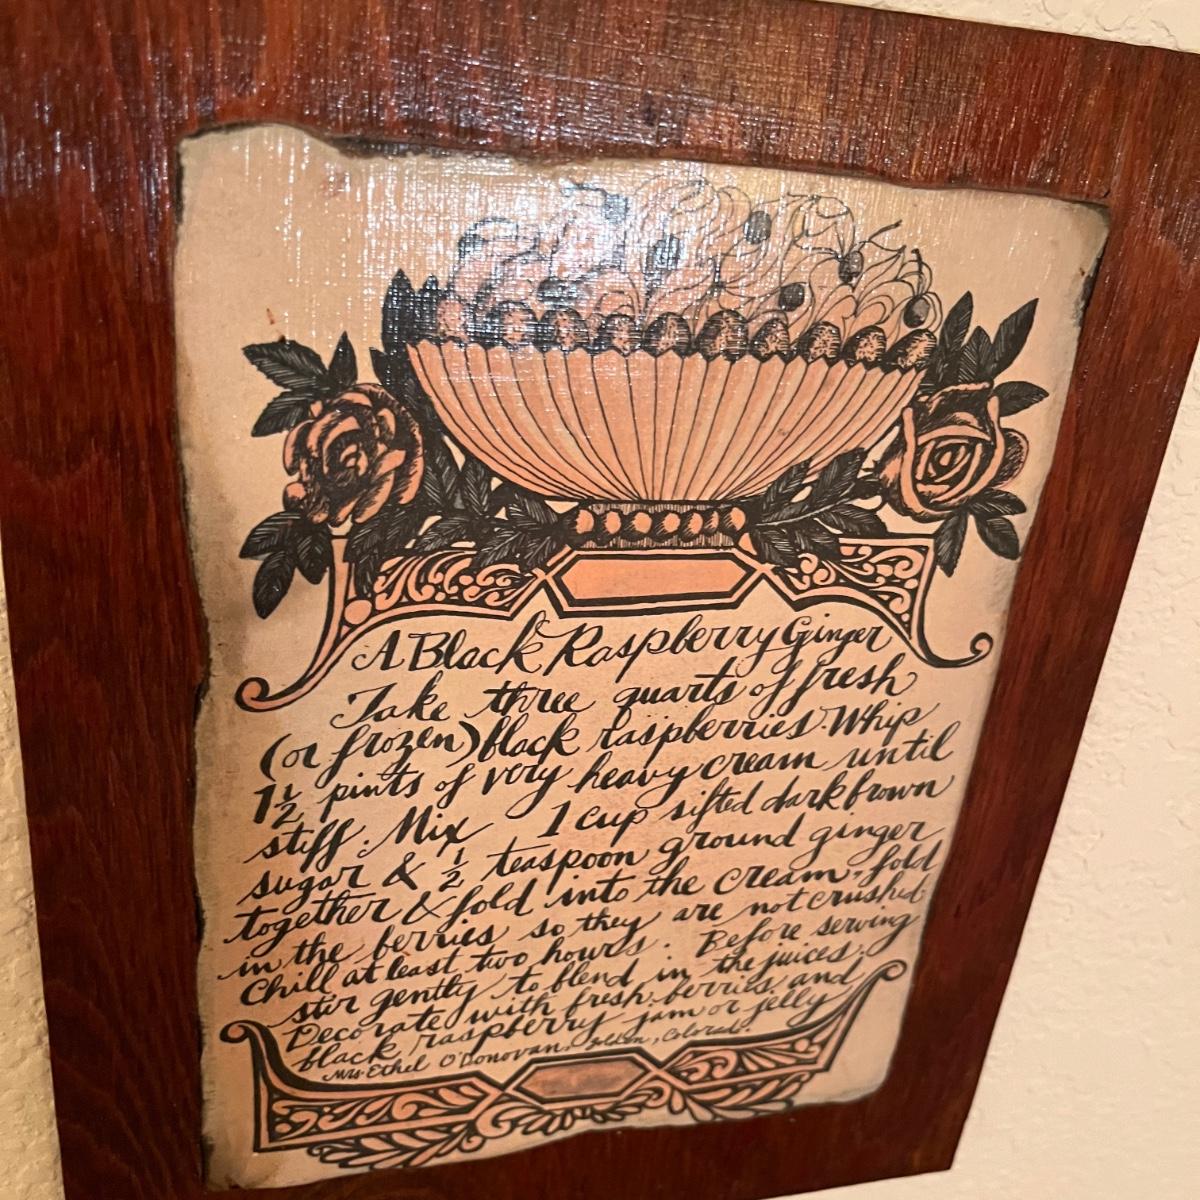 A Black Raspberry Ginger
Take three quarts of fresh
(or frozen) black raspberries. Whip
1 1/2 pints of very heavy cream until
stiff. Mix 1 cup sifted dark brown
sugar & 1/2 teaspoon ground ginger
together & fold into the cream, fold
in the berries so they are not crushed.
Chill at least two hours. Before serving
stir gently to blend in the juices.
Decorate with fresh berries and
black raspberry jam or jelly
Mrs. Ethel O'Donovan. Golden, Colorado.